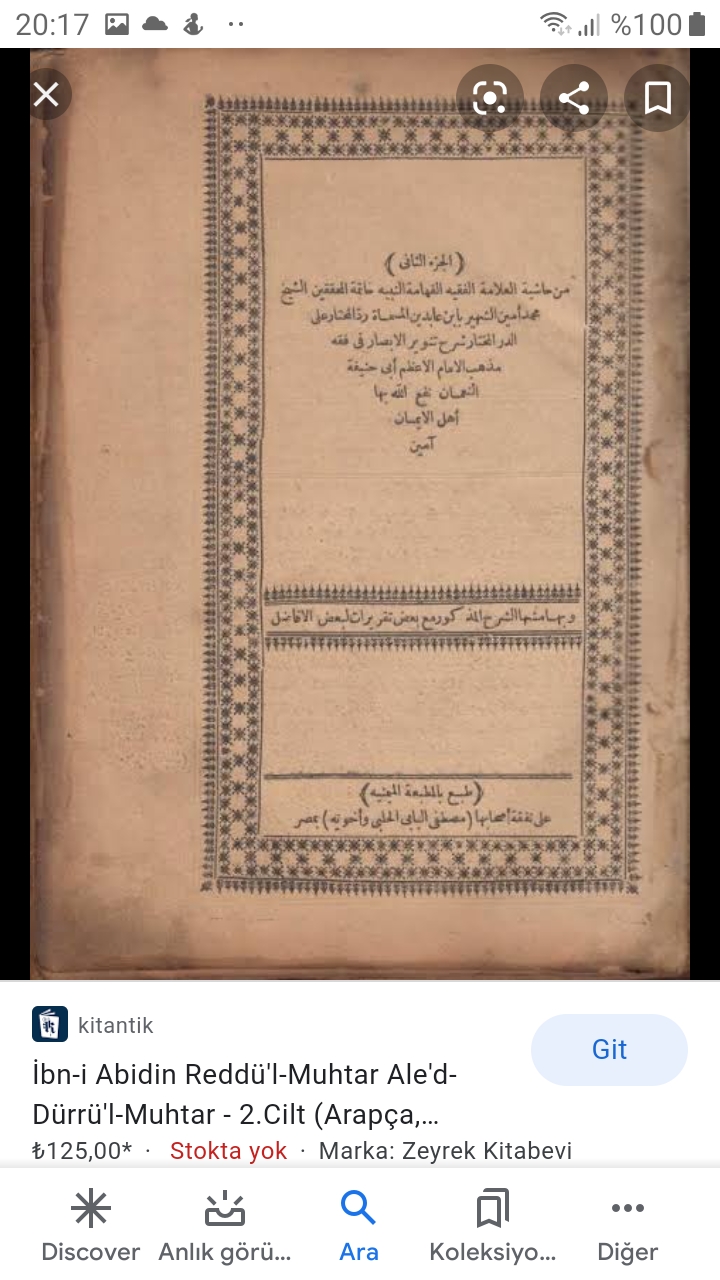 20:17
%100
(الجزء الثانى)
من حاشية العلامة الفقيه الفهامة النبيه خاتمة المحققين الشيخ
محمد أمين الشهير بابن عابدين المسماة رد المحتار على
الدر المختار شرح تنوير الابصار فى فقه
مذهب الامام الاعظم أبى حنيفة
النعمان نفع الله بها
أهل الايمان
آمين
وبهامشها الشرح المذكور مع بعض تقريرات لبعض الافاضل
(طبع بالمطبعة الميمنيه)
على نفقة أصحابها (مصطفى البابى الحلبى وأخويه) بمصر
kitantik
Git
İbn-i Abidin Reddü'l-Muhtar Ale'd-
Dürrü'l-Muhtar - 2.Cilt (Arapça,...
₺125,00* · Stokta yok · Marka: Zeyrek Kitabevi
Discover Anlık görü... Ara Koleksiyo... Diğer